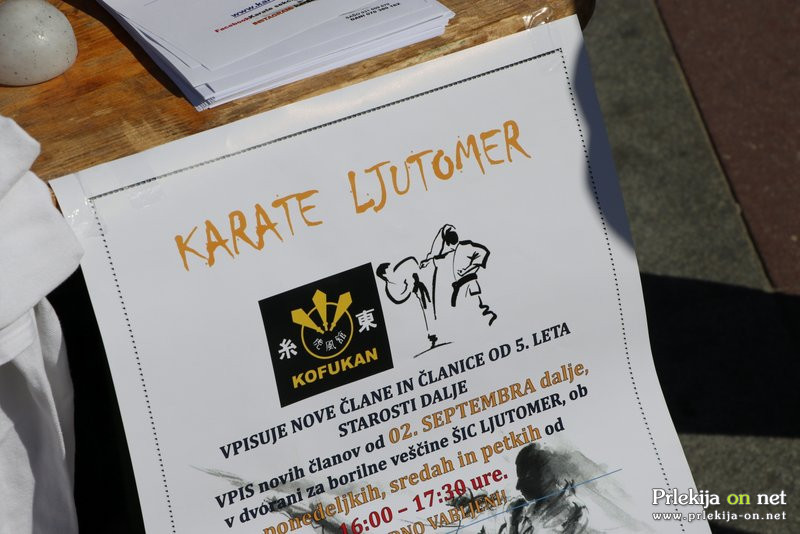 KARATE LJUTOMER
糸 東
KOFUKAN
VPISUJE NOVE ČLANE IN ČLANICE OD 5. LETA
STAROSTI DALJE
VPIS novih članov od 02. SEPTEMBRA dalje,
v dvorani za borilne veščine ŠIC LJUTOMER, ob
ponedeljkih, sredah in petkih od
16:00 – 17:30 ure.
VABLJENI
Prlekija on net
www.prlekija-on.net